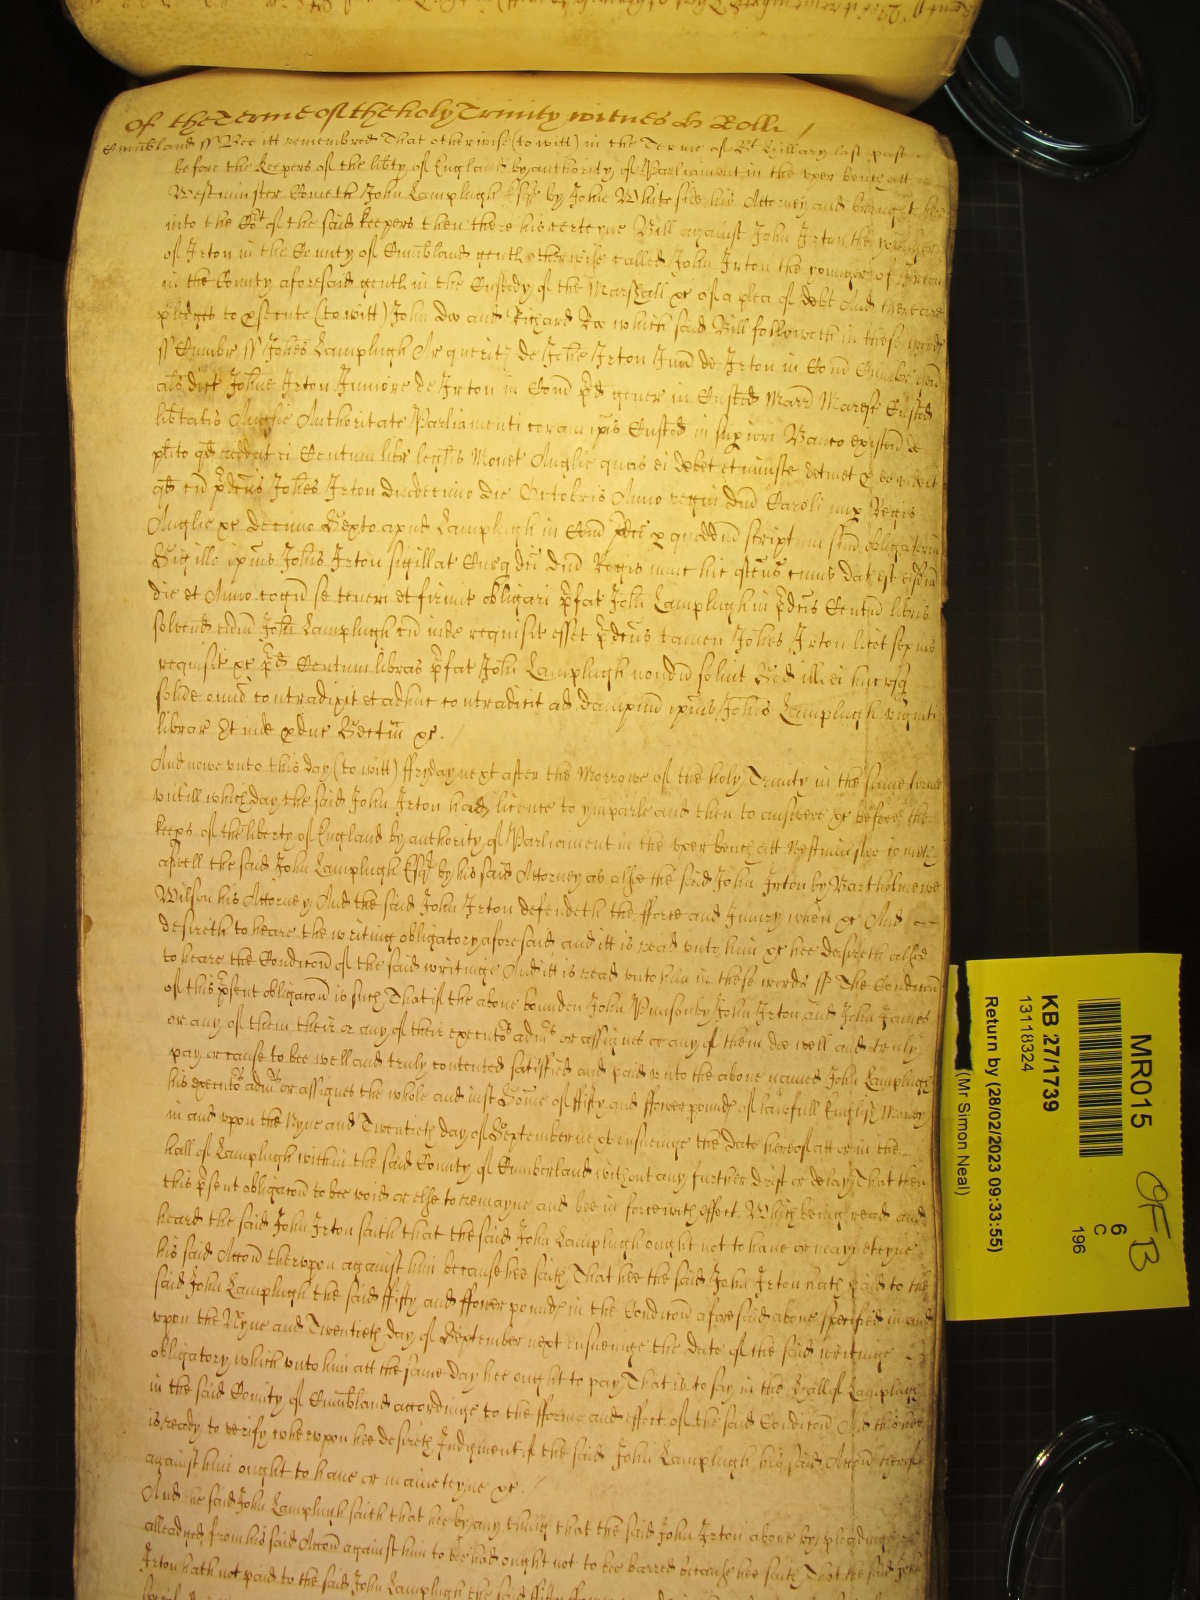 Of the Terme of the holy Trinity witnes H Rolle /
Cumbland ss Bee itt remembred That otherwise (to witt) in the Terme of St Hillary last past
before the Keepers of the libty of England by authority of Parliament in the vper bench att
Westminster Cometh John Lamplugh Esqr by John Whiteside his Attorney and brought here
into the Cort of the said keepers then there his certeyne Bill against John Irton the younger
of Irton in the County of Cumbland gent otherwise called John Irton the younger of Irton
in the County aforesaid gentln in the Custody of the Marshall &c of a plea of debt And there are
pledges to psecute (to witt) John Doo and Richard Roo which said Bill followeth in these words
ss Cumbr ss Johes Lamplugh Ar querit de Johe Irton Jun de Irton in Com Cumbr gen
als dict Johne Irton Juniore de Irton in Com pd gener in Custod Marr Maresc Custod
libtatis Anglie Authoritate Parliamenti coram ipis Custod in supiori Banco existen de
plito qd reddat ei Centum libr legalis Monet Anglie quas ei debet et iniuste detinet p eo videlt
qd cu pdcus Johes Irton duodecimo die Octobris Anno regni dni Caroli nup Regis
Anglie &c decimo Sexto apud Lamplugh in Com pdco p quoddm scriptum suu obligatoriu
Sigillo ipius Johis Irton sigillat Curq dci dni Regis nunc hic ostens cuius dat est eisdem
die et Anno cogn se teneri et firmit obligari pfat Johi Lamplugh in pdcis Centu libris
solvend eidm Johi Lamplugh cu inde requisit esset pdcus tamen Johes Irton licet sepius
requisit &c pd Centum libras pfat Johi Lamplugh nondu soluit Sed ill ei hucusq
solvere omnio contradixit et adhuc contradicit ad dampnu ipius Johis Lamplugh viginti
librar Et inde pduc Sectam &c. /
And nowe vnto this day (to witt) ffryday next after the Morrowe of the holy Trinity in the same terme
vntill which day the said John Irton had licence to ymparle and then to answere &c before the
keeps of the liberty of England by authority of Parliament in the vper bench att Westminster cometh
aswell the said John Lamplugh Esqr by his said Attorney as alsoe the said John Irton by Bartholmewe
Wilson his Attorney And the said John Irton defendeth the fforce and Iniury when &c And
desireth to heare the writing obligatory aforesaid and itt is read vnto him &c hee desireth alsoe
to heare the Condicon of the said writinge And itt is read vnto him in these words ss The Condicon
of this psent obligacon is such That if the aboue bounden John Ponsonby John Irton and John James
or any of them their or any of their executs adms or assignes or any of them doe well and truly
pay or cause to bee well and truly contented satisfied and paid vnto the aboue named John Lamplugh
his executs adms or assignes the whole and iust Some of ffifty and ffower pounds of lawfull English Money
in and vpon the Nyne and Twentieth day of September next ensueinge the date hereof att or in the
hall of Lamplugh within the said County of Cumberland without any further drift or delay That then
this psent obligacon to bee void or else to remayne and bee in force with effect. Which being read and
heard the said John Irton saith that the said John Lamplugh ought not to haue or mayneteyne
his said Accon therevpon against him because hee saith That hee the said John Irton hath paid to the
said John Lamplugh the said ffifty and ffower pounds in the Condicon aforesaid aboue specified in and
vpon the Nyne and Twentieth day of September next ensueinge the date of the said writinge
obligatory which vnto him att the same day hee ought to pay That is to say in the Hall of Lamplugh
in the said County of Cumbland accordinge to the fforme and effect of the said Condicon And this hee
is ready to verify wherevpon hee desireth Judgment if the said John Lamplugh his said Accon thereof
against him ought to haue or maineteyne &c /
And the said John Lamplugh saith that hee by any thing that the said John Irton aboue by pleadinge
alleadged from his said Accon against him to bee had ought not to bee barred because hee saith That the said John
Irton hath not paid to the said John Lamplugh the said ffifty ffower
MR015
KB 27/1739
13118324
Return by (28/02/2023 09:33:55)
(Mr Simon Neal)
6
C
196
OFB